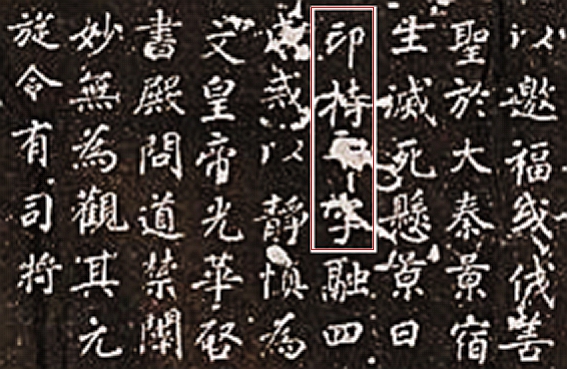 以邀福或伐善
聖於大秦景宿
生滅死懸景日
印持字融四
成戒以靜慎為
文皇帝光華啓
書殿問道禁闈
妙無為觀其元
旋令有司將